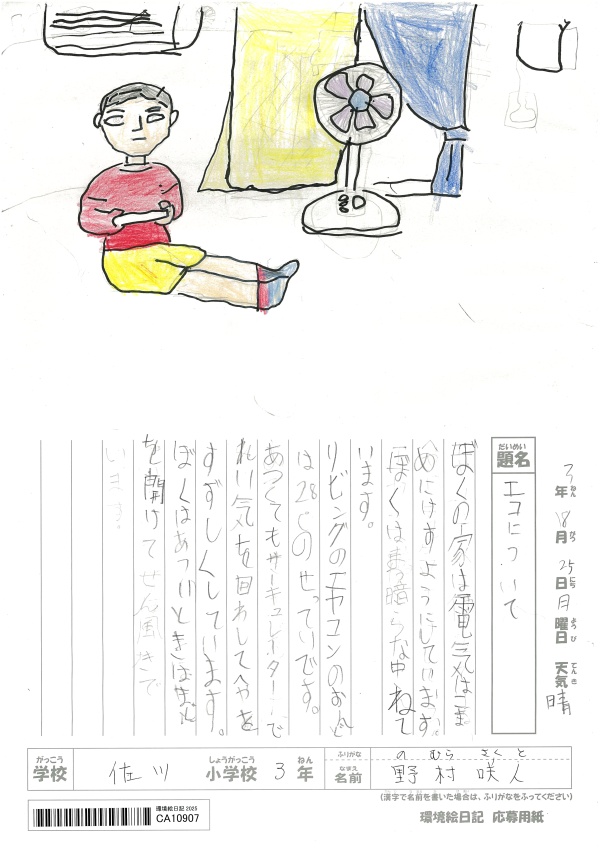 3年8月25日月曜日 天気 晴
ねん がつ にち ようび てんき
だいめい
題名 エコについて
ぼくの家は電気はこま
めにけすようにしています。
ぼくはまっ暗らな中ねて
います。
リビングのエアコンのおんど
は28℃のせっていです。
あつくてもサーキュレーターで
れい気を回わしてへやを
すずしくしています。
ぼくはあついときはまど
を開けてせん風きで
います。
がっこう しょうがっこう ねん
学校 佐ツ 小学校 3年
ふりがな のむら さくと
なまえ
名前 野村咲人
(漢字で名前を書いた場合は、ふりがなをふってください)
環境絵日記 2025
CA10907
環境絵日記 応募用紙